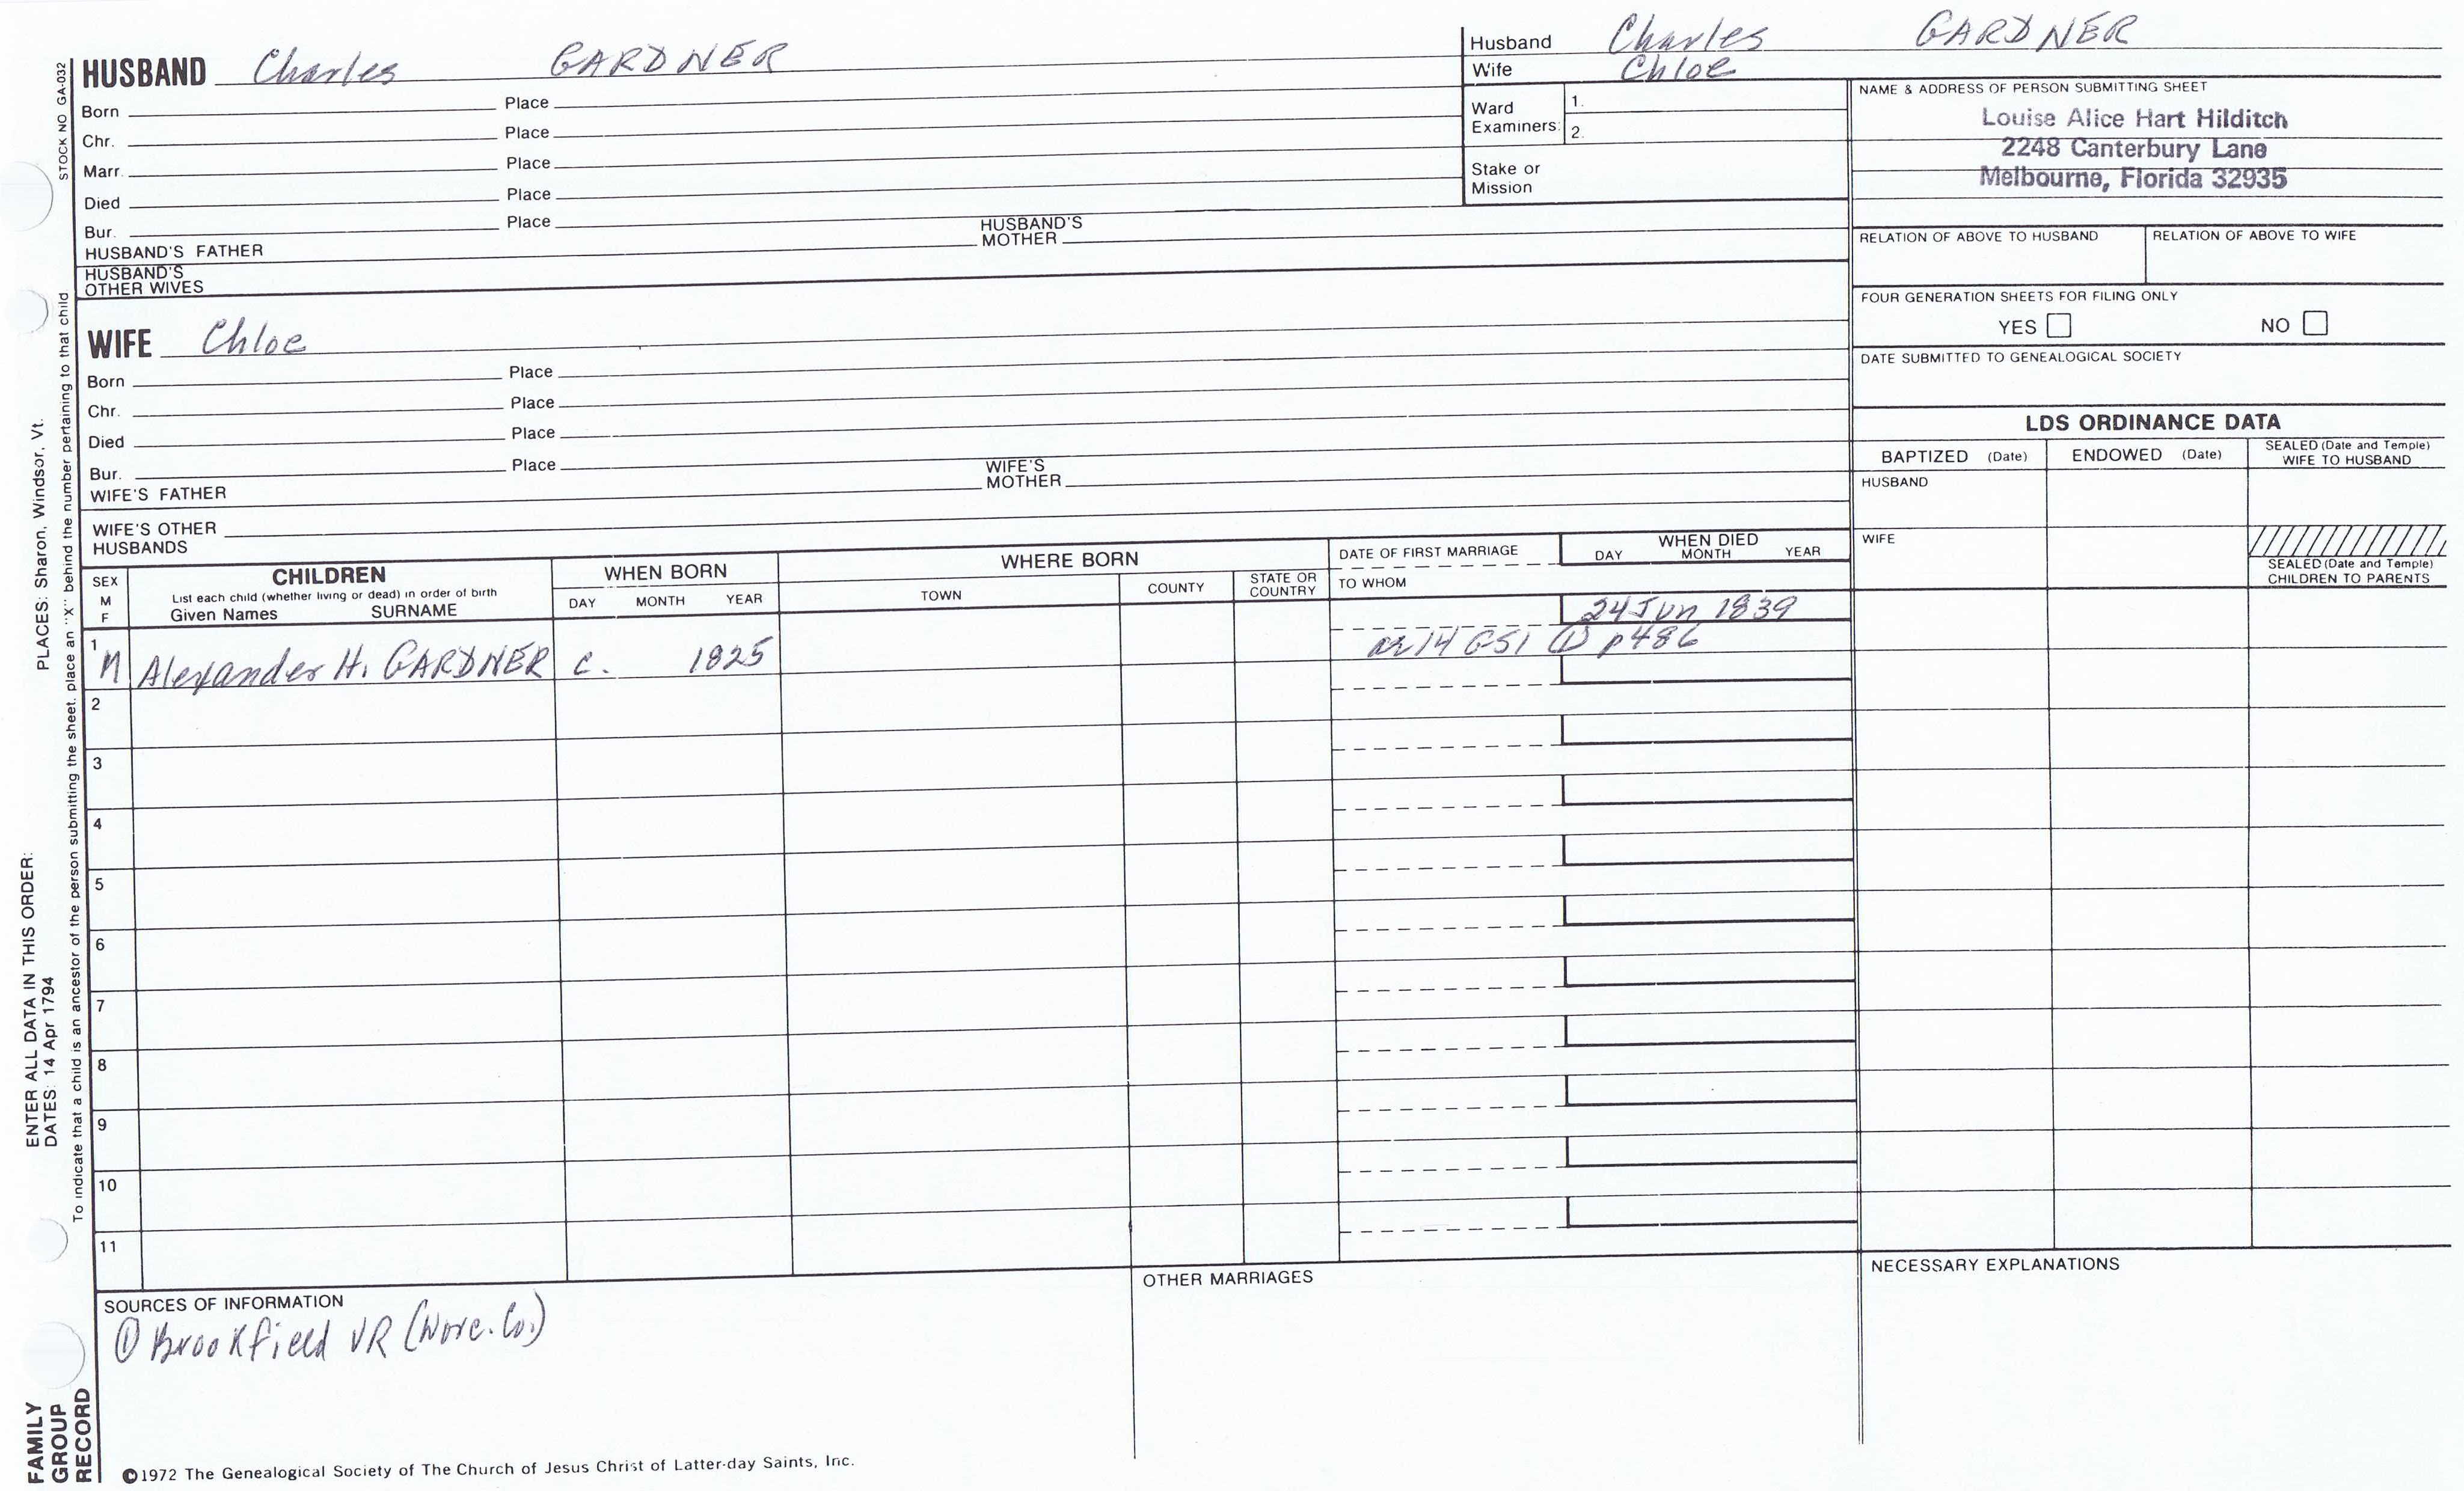 HUSBAND Charles GARDNER
Born Place
Chr. Place
Marr. Place
Died Place
Bur. Place
HUSBAND'S FATHER HUSBAND'S MOTHER
HUSBAND'S OTHER WIVES
WIFE Chloe
Born Place
Chr. Place
Died Place
Bur. Place
WIFE'S FATHER WIFE'S MOTHER
WIFE'S OTHER HUSBANDS
Husband Charles GARDNER
Wife Chloe
Ward Examiners: 1.
2.
Stake or Mission
NAME & ADDRESS OF PERSON SUBMITTING SHEET
Louise Alice Hart Hilditch
2248 Canterbury Lane
Melbourne, Florida 32935
RELATION OF ABOVE TO HUSBAND RELATION OF ABOVE TO WIFE
FOUR GENERATION SHEETS FOR FILING ONLY
YES NO
DATE SUBMITTED TO GENEALOGICAL SOCIETY
LDS ORDINANCE DATA
BAPTIZED (Date) ENDOWED (Date) SEALED (Date and Temple) WIFE TO HUSBAND
HUSBAND
WIFE
SEALED (Date and Temple) CHILDREN TO PARENTS
SEX M F
CHILDREN
List each child (whether living or dead) in order of birth
Given Names SURNAME
WHEN BORN
DAY MONTH YEAR
WHERE BORN
TOWN COUNTY STATE OR COUNTRY
DATE OF FIRST MARRIAGE
TO WHOM
WHEN DIED
DAY MONTH YEAR
24 Jun 1839
1 M Alexander H. GARDNER c. 1825 14 GS1 ① p486
2
3
4
5
6
7
8
9
10
11
SOURCES OF INFORMATION
① Brookfield VR (Worc. Co.)
OTHER MARRIAGES
NECESSARY EXPLANATIONS
©1972 The Genealogical Society of The Church of Jesus Christ of Latter-day Saints, Inc.
STOCK NO GA-032
To indicate that a child is an ancestor of the person submitting the sheet, place an "X" behind the number pertaining to that child
PLACES: Sharon, Windsor, Vt.
ENTER ALL DATA IN THIS ORDER:
DATES: 14 Apr 1794
FAMILY
GROUP
RECORD